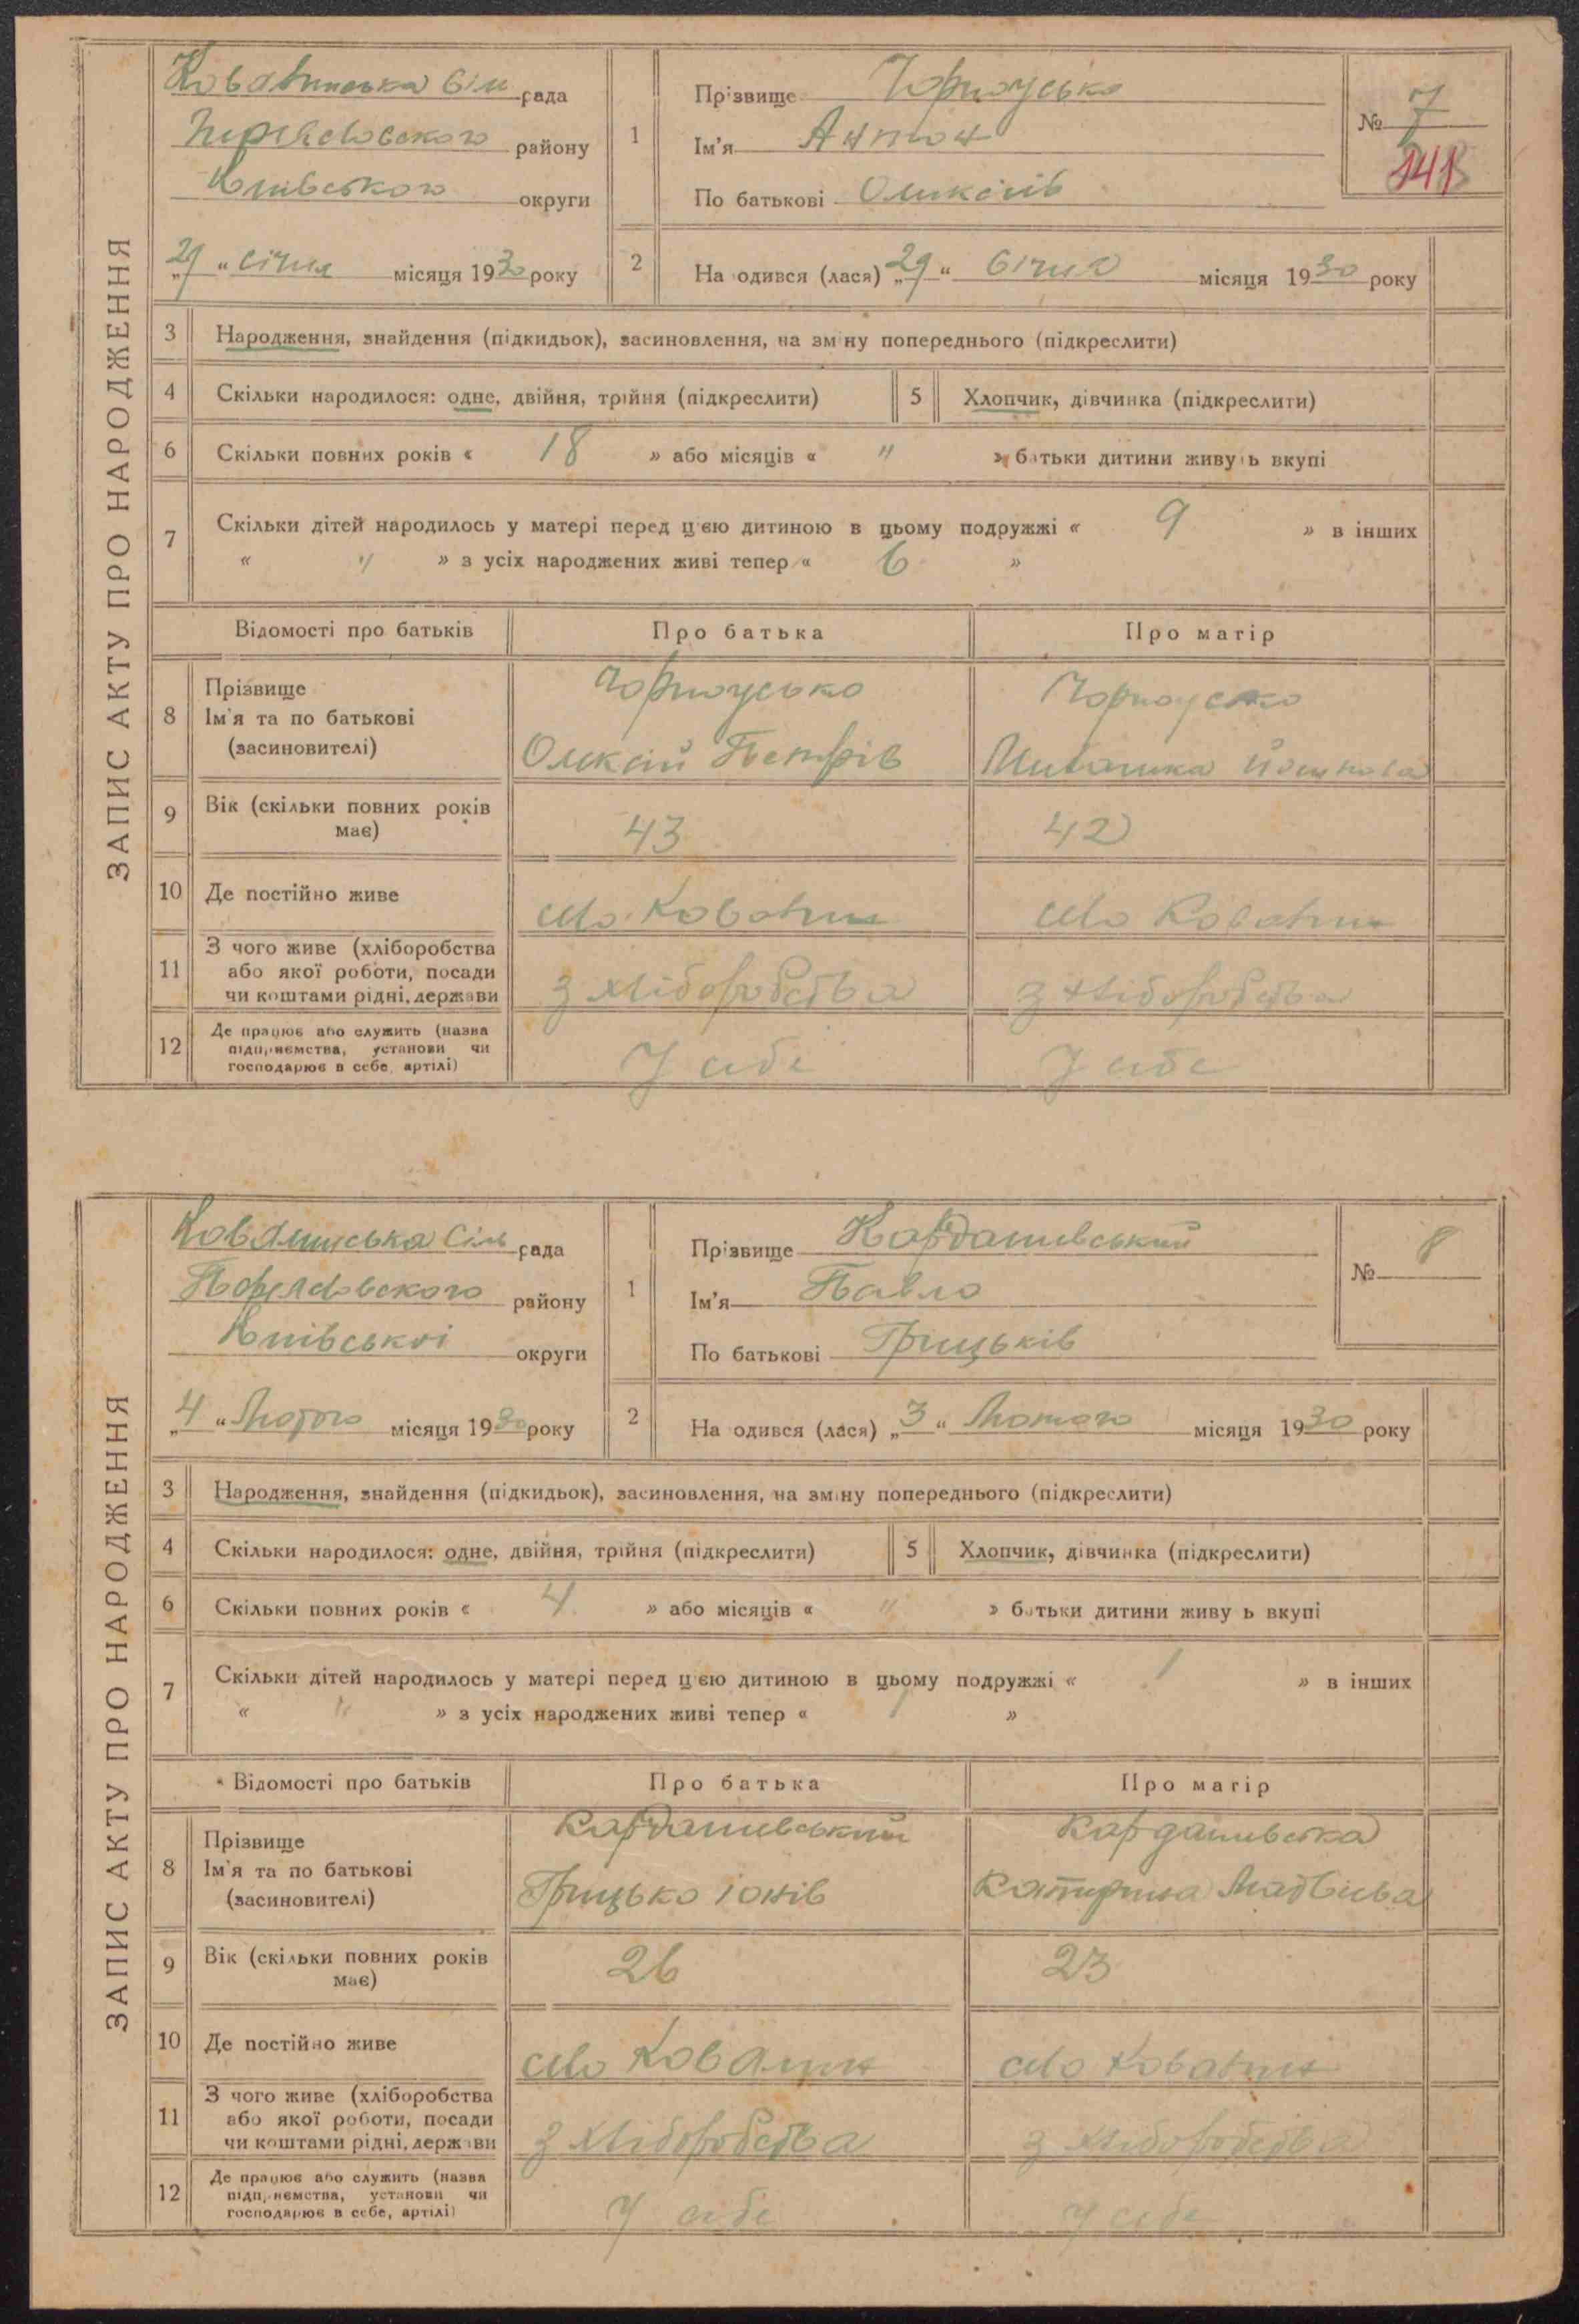 ЗАПИС АКТУ ПРО НАРОДЖЕННЯ
Ковалинська Сіль рада
району
Київського округи
„29“ Січня місяця 1930 року
1
Прізвище Чорноусько
Ім'я Антон
По батькові Олексіів
№ 7
141
2
На одився (лася) „29“ Січня місяця 1930 року
3 Народження, знайдення (підкидьок), засиновлення, на зміну попереднього (підкреслити)
4 Скільки народилося: одне, двійня, трійня (підкреслити) 5 Хлопчик, дівчинка (підкреслити)
6 Скільки повних років « 18 » або місяців « " » батьки дитини живуть вкупі
7 Скільки дітей народилось у матері перед цією дитиною в цьому подружжі « 9 » в інших
« " » з усіх народжених живі тепер « 6 »
Відомості про батьків Про батька Про матір
8 Прізвище Ім'я та по батькові (засиновителі)
Чорноусько Чорноусько
Олексій Петрів
9 Вік (скільки повних років має) 43 42
10 Де постійно живе село Ковалин село Ковалин
11 З чого живе (хліборобства або якої роботи, посади чи коштами рідні, держави з хліборобства з хліборобства
12 Де працює або служить (назва підприємства, установи чи господарює в себе, артілі) У себе У себе
ЗАПИС АКТУ ПРО НАРОДЖЕННЯ
Ковалинська Сіль рада
району
Київської округи
„4“ Лютого місяця 1930 року
1
Прізвище Кардашевський
Ім'я Павло
По батькові Грицьків
№ 8
2
На одився (лася) „3“ Лютого місяця 1930 року
3 Народження, знайдення (підкидьок), засиновлення, на зміну попереднього (підкреслити)
4 Скільки народилося: одне, двійня, трійня (підкреслити) 5 Хлопчик, дівчинка (підкреслити)
6 Скільки повних років « 4 » або місяців « " » батьки дитини живу ь вкупі
7 Скільки дітей народилось у матері перед цією дитиною в цьому подружжі « 1 » в інших
« " » з усіх народжених живі тепер « 1 »
Відомості про батьків Про батька Про матір
8 Прізвище Ім'я та по батькові (засиновителі)
Кардашевський Кардашевська
Грицько Юхів Катерина Матвієва
9 Вік (скільки повних років має) 26 23
10 Де постійно живе село Ковалин село Ковалин
11 З чого живе (хліборобства або якої роботи, посади чи коштами рідні, держави з хліборобства з хліборобства
12 Де працює або служить (назва підприємства, установи чи господарює в себе, артілі) У себе У себе